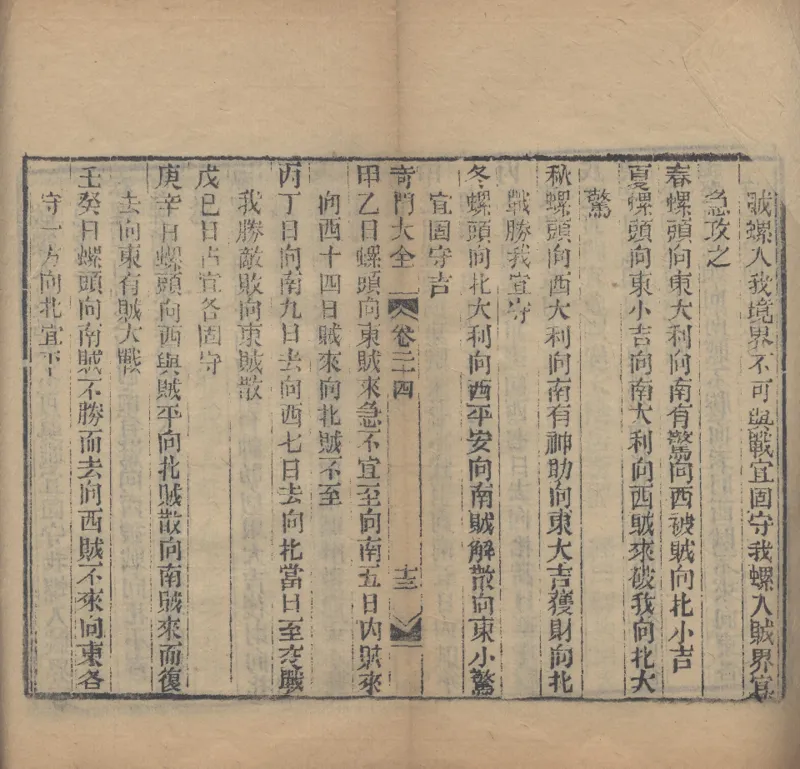 賊螺入我境界不可與戰宜固守我螺入賊界宜
急攻之
春螺頭向東大利向南有驚向西被賊向北小吉
夏螺頭向東小吉向南大利向西賊來破我向北大
驚
秋螺頭向西大利向南有神助向東大吉獲財向北
戰勝我宜守
冬螺頭向北大利向西平安向南賊解散向東小驚
宜固守吉
奇門大全 卷二十四 十三
甲乙日螺頭向東賊來急不宜至向南五日內賊來
向西十四日賊來向北賊不至
丙丁日向南九日去向西七日去向北當日至交戰
我勝敵敗向東賊散
戊巳日占宜各固守
庚辛日螺頭向西與賊平向北賊散向南賊來而復
去向東有賊大戰
壬癸日螺頭向南賊不勝而去向西賊不來向東各
守一方向北宜平